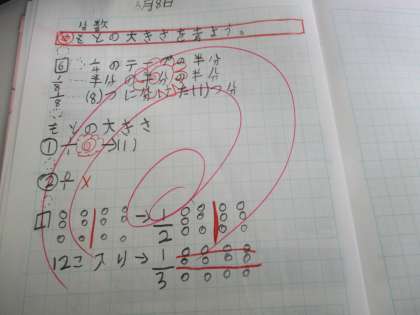 月8日
分数
もとの大きさを考よう。
6 1/4のテープの半分
1/8 半分の半分の半分
1/8 (8)つに分けた(1)つ分
もとの大きさ
① →(1)
②
1 → 1/2
12こ入り → 1/3